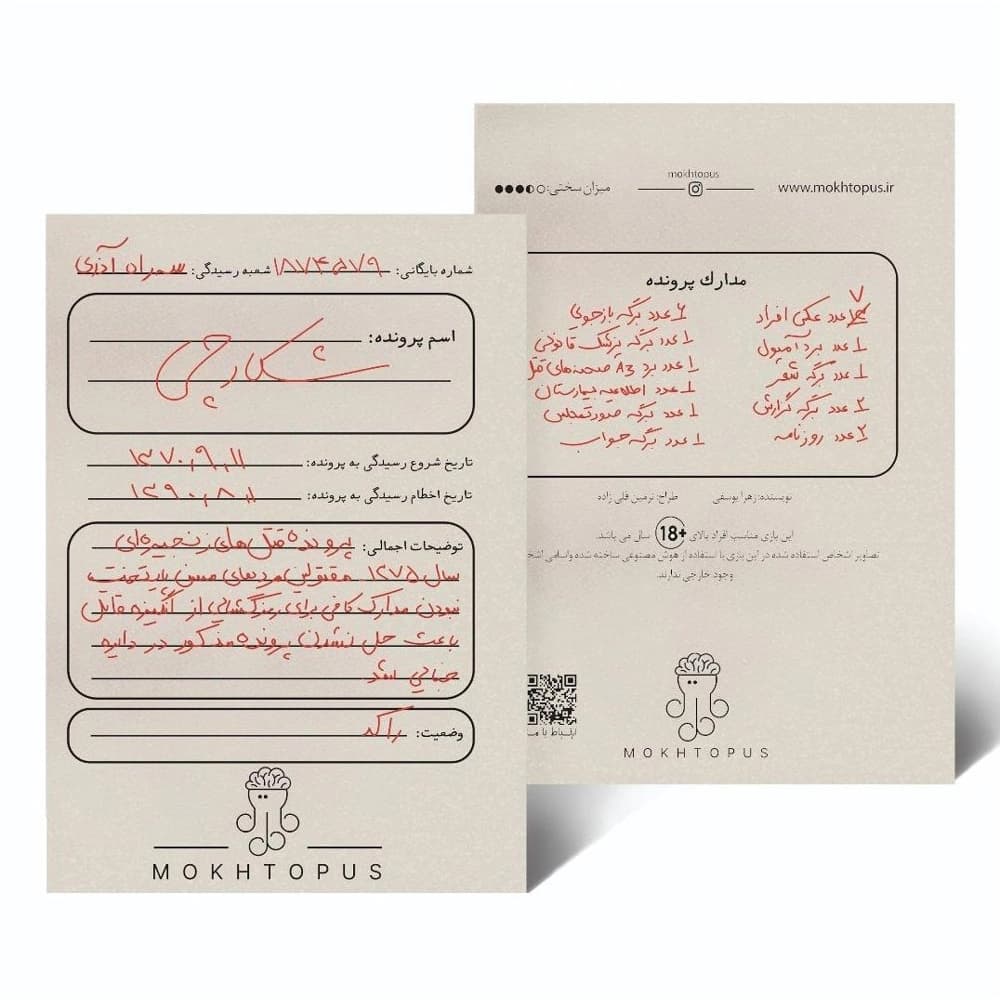 شماره بایگانی: ۱۸۷۴۵۷۹ شعبه رسیدگی: سهراه آذری
اسم پرونده:
شکارچی
تاریخ شروع رسیدگی به پرونده: ۱۳۷۰,۹,۱۱
تاریخ اخطام رسیدگی به پرونده: ۱۳۹۰,۸,۱
توضیحات اجمالی: پرونده قتل های زنجیره‌ای
سال ۱۳۷۵ مقتولین مردهای مسن پایتخت
نبودن مدارک کافی برای رمزگشایی از انگیزه قاتل
باعث حل نشدن پرونده مذکور در دایره
جنایی شد
وضعیت: راکد
MOKHTOPUS
میزان سختی:
mokhtopus
www.mokhtopus.ir
مدارک پرونده
۷ عدد عکس افراد
۱ عدد برد آمپول
۱ عدد برگه شعر
۲ عدد برگه گزارش
۲ عدد روزنامه
۶ عدد برگه بازجویی
۱ عدد برگه پزشک قانونی
۱ عدد برد A3 صحنه‌های قتل
۱ عدد اطلاعیه بیمارستان
۱ عدد برگه صورتمجلس
۱ عدد برگه جواب
نویسنده: زهرا یوسفی طراح: نرمین قلی زاده
این بازی مناسب افراد بالای 18+ سال می باشد.
تصاویر اشخاص استفاده شده در این بازی با استفاده از هوش مصنوعی ساخته شده واسامی
وجود خارجی ندارند.
ارتباط با
MOKHTOPUS